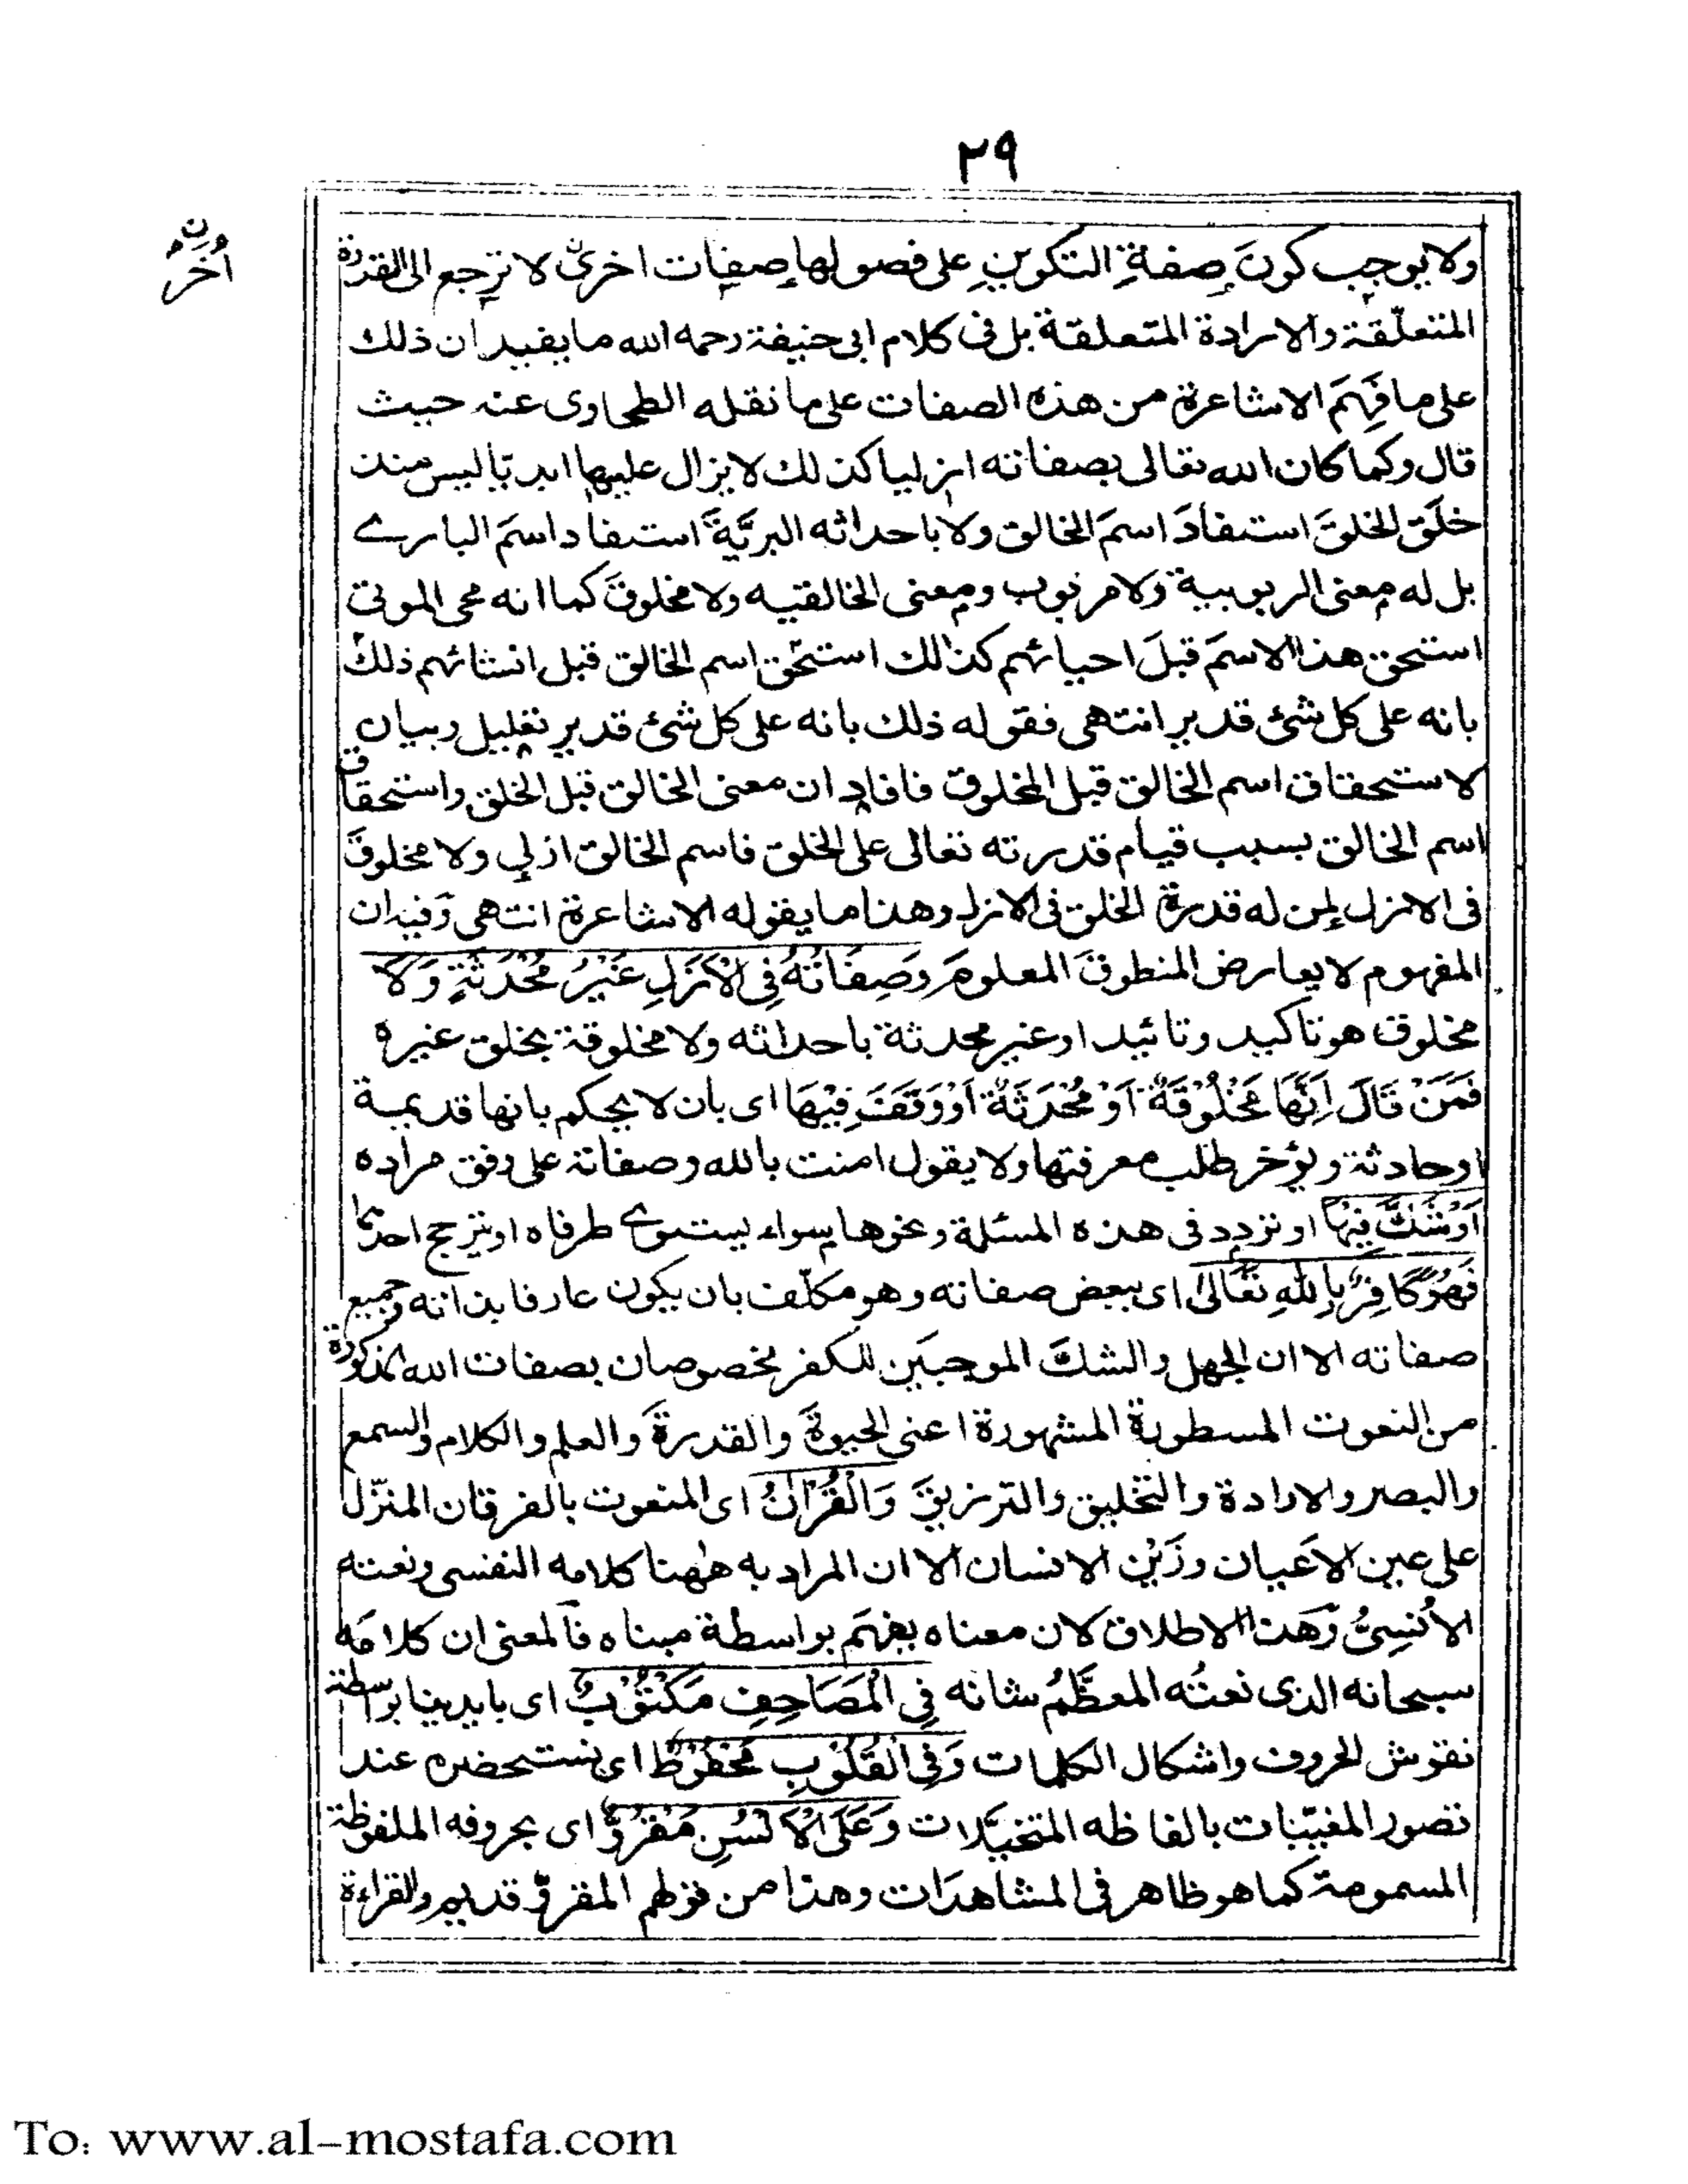 ٢٩
ولا يوجب كونَ صفةِ التكوينِ على فصولها صفات اخرى لا ترجع الى القدرة
ن
اُخَرُ
المتعلّقة والارادة المتعلقة بل فى كلام ابى حنيفة رحمه الله ما يفيد ان ذلك
على ما فَهِمَ الاشاعرة من هذه الصفات على ما نقله الطحاوى عنه حيث
قال وكما كان الله تعالى بصفاته ازليا كذلك لا يزال عليها ابديّا ليس منذ
خلَق الخلقَ استفادَ اسمَ الخالق ولا باحداثه البريَّةَ استفاد اسمَ البارے
بل له معنى الربوبية ولا مربوب ومعنى الخالقيه ولا مخلوقَ كما انه محى الموتى
استحق هذا الاسمَ قبلَ احيائهم كذالك استحّق اسم الخالق قبل انشائهم ذلك
بانه على كل شئ قدير انتهى فقوله ذلك بانه على كل شئ قدير تعليل وبيان
لاستحقاق اسم الخالق قبل المخلوق فافاد ان معنى الخالق قبل الخلق واستحقاق
اسم الخالق بسبب قيام قدرته تعالى على الخلق فاسم الخالق ازلي ولا مخلوقَ
فى الازل لمن له قدرة الخلق فى الازل وهذا ما يقوله الاشاعرة انتهى وفيه ان
المفهوم لا يعارض المنطوقَ المعلومَ وَصِفَاتُهُ فِي الْاَزَلِ غَيْرُ مُحْدَثَةٍ وَلَا
مخلوق هو تاكيد وتائيد او غير محدثة باحداثه ولا مخلوقة بخلق غيره
فَمَنْ قَالَ اِنَّهَا مَخْلُوْقَةٌ اَوْ مُحْدَثَةٌ اَوْ وَقَفَ فِيْهَا اى بان لا يحكم بانها قديمة
او حادثة ويؤخر طلب معرفتها ولا يقول امنت بالله وصفاته على وفق مراده
اَوْ شَكَّ فِيْهَا او تردد فى هذه المسئلة ونحوها سواء يستوے طرفاه او يترجح احدهما
فَهُوَ كَافِرٌ بِاللهِ تَعَالىٰ اى ببعض صفاته وهو مكلّف بان يكون عارفا بذاته وجميع
صفاته الا ان الجهل والشكَّ الموجبَين للكفر مخصوصان بصفات الله المذكورة
من النعوت المسطورة المشهورة اعنى الحيوةَ والقدرةَ والعلم والكلام والسمع
والبصر والارادة والتخليق والترزيقَ وَالْقُرْاٰنُ اى المنعوت بالفرقان المنزّل
على عين الاَعيان وزَيْن الانسان الا ان المراد به هٰهنا كلامه النفسى ونعته
الاُنسِىُّ وَهذا الاطلاق لان معناه يفهَم بواسطة مبناه فالمعنى ان كلامَه
سبحانه الذى نعتُه المعظَّمُ شانه فِي الْمَصَاحِفِ مَكْتُوْبٌ اى بايدينا بواسطة
نقوش الحروف واشكال الكلمات وَفِي الْقُلُوْبِ مَحْفُوْظٌ اى نستحضره عند
تصور المغيّبات بالفاظه المتخيَّلات وَعَلَى الْاَلْسُنِ مَقْرُوٌّ اى بحروفه الملفوظة
المسموعة كما هو ظاهر فى المشاهدَات وهذا من قولهم المقروّ قديم والقراءة
To: www.al-mostafa.com